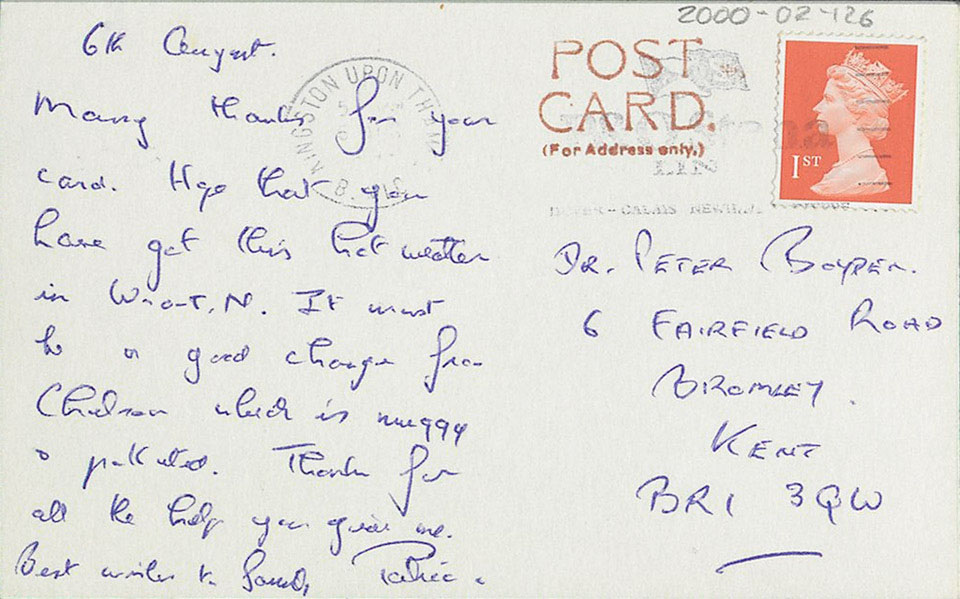 2000-02-126
6th August.
Many thanks for your
card. Hope that you
have got this hot weather
in W
in It must
be a good change from
Chelsea which is muggy
& polluted. Thanks for
all the help you give me.
Best wishes to family, Patric.
KINGSTON UPON THAMES
POST
CARD.
(For Address only.)
1ST
DR. PETER BOYDEN.
6 FAIRFIELD ROAD
BROMLEY.
KENT
BR1 3QW